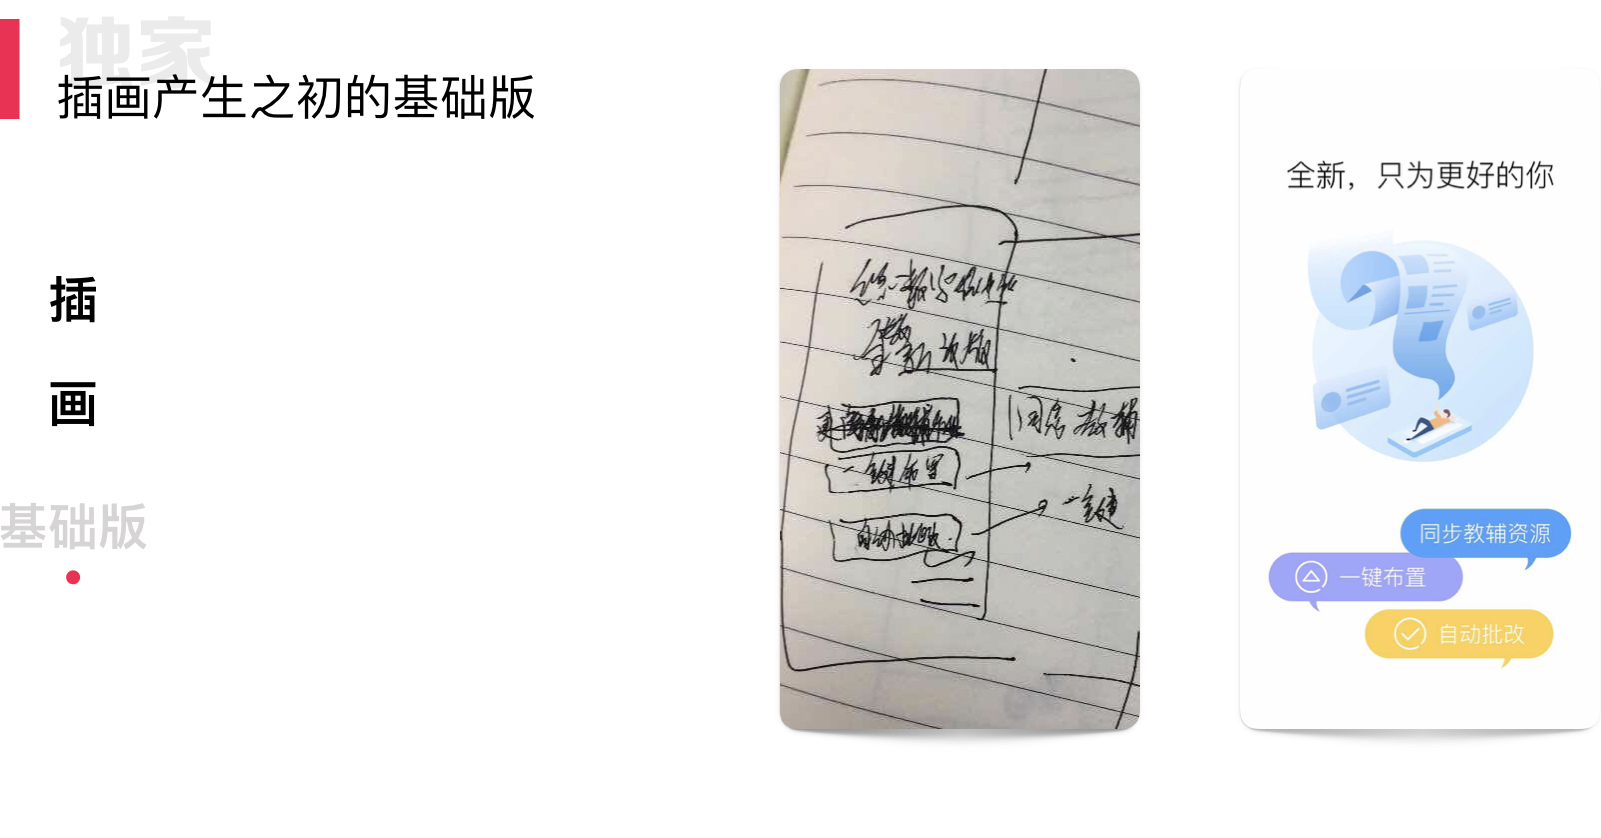 独家
插画产生之初的基础版
插
画
基础版
整
新改版
一键布置
自动批改
同步教辅
一键
全新，只为更好的你
同步教辅资源
一键布置
自动批改